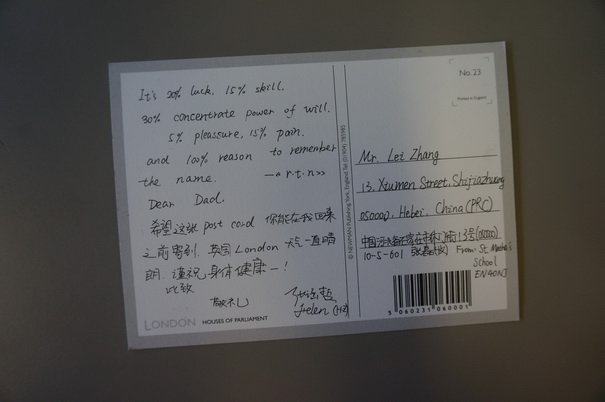 It's 20% luck. 15% skill.
30% concentrate power of will.
5% pleassure, 15% pain.
and 100% reason to remember
the name.
Dear Dad.
希望这张 post card 你能在我回来
之前寄到. 英国 London 天气一直晴
朗. 谨祝身体健康一!
此致
敬礼
Helen
LONDON HOUSES OF PARLIAMENT
No. 23
Printed in England
Mr. Lei Zhang
13, Xiumen Street, Shijiazhuang
050000, Hebei, China (PRC)
中国 13号 (050000)
10-5-601 From: St
School
EN4
5 060231 060001